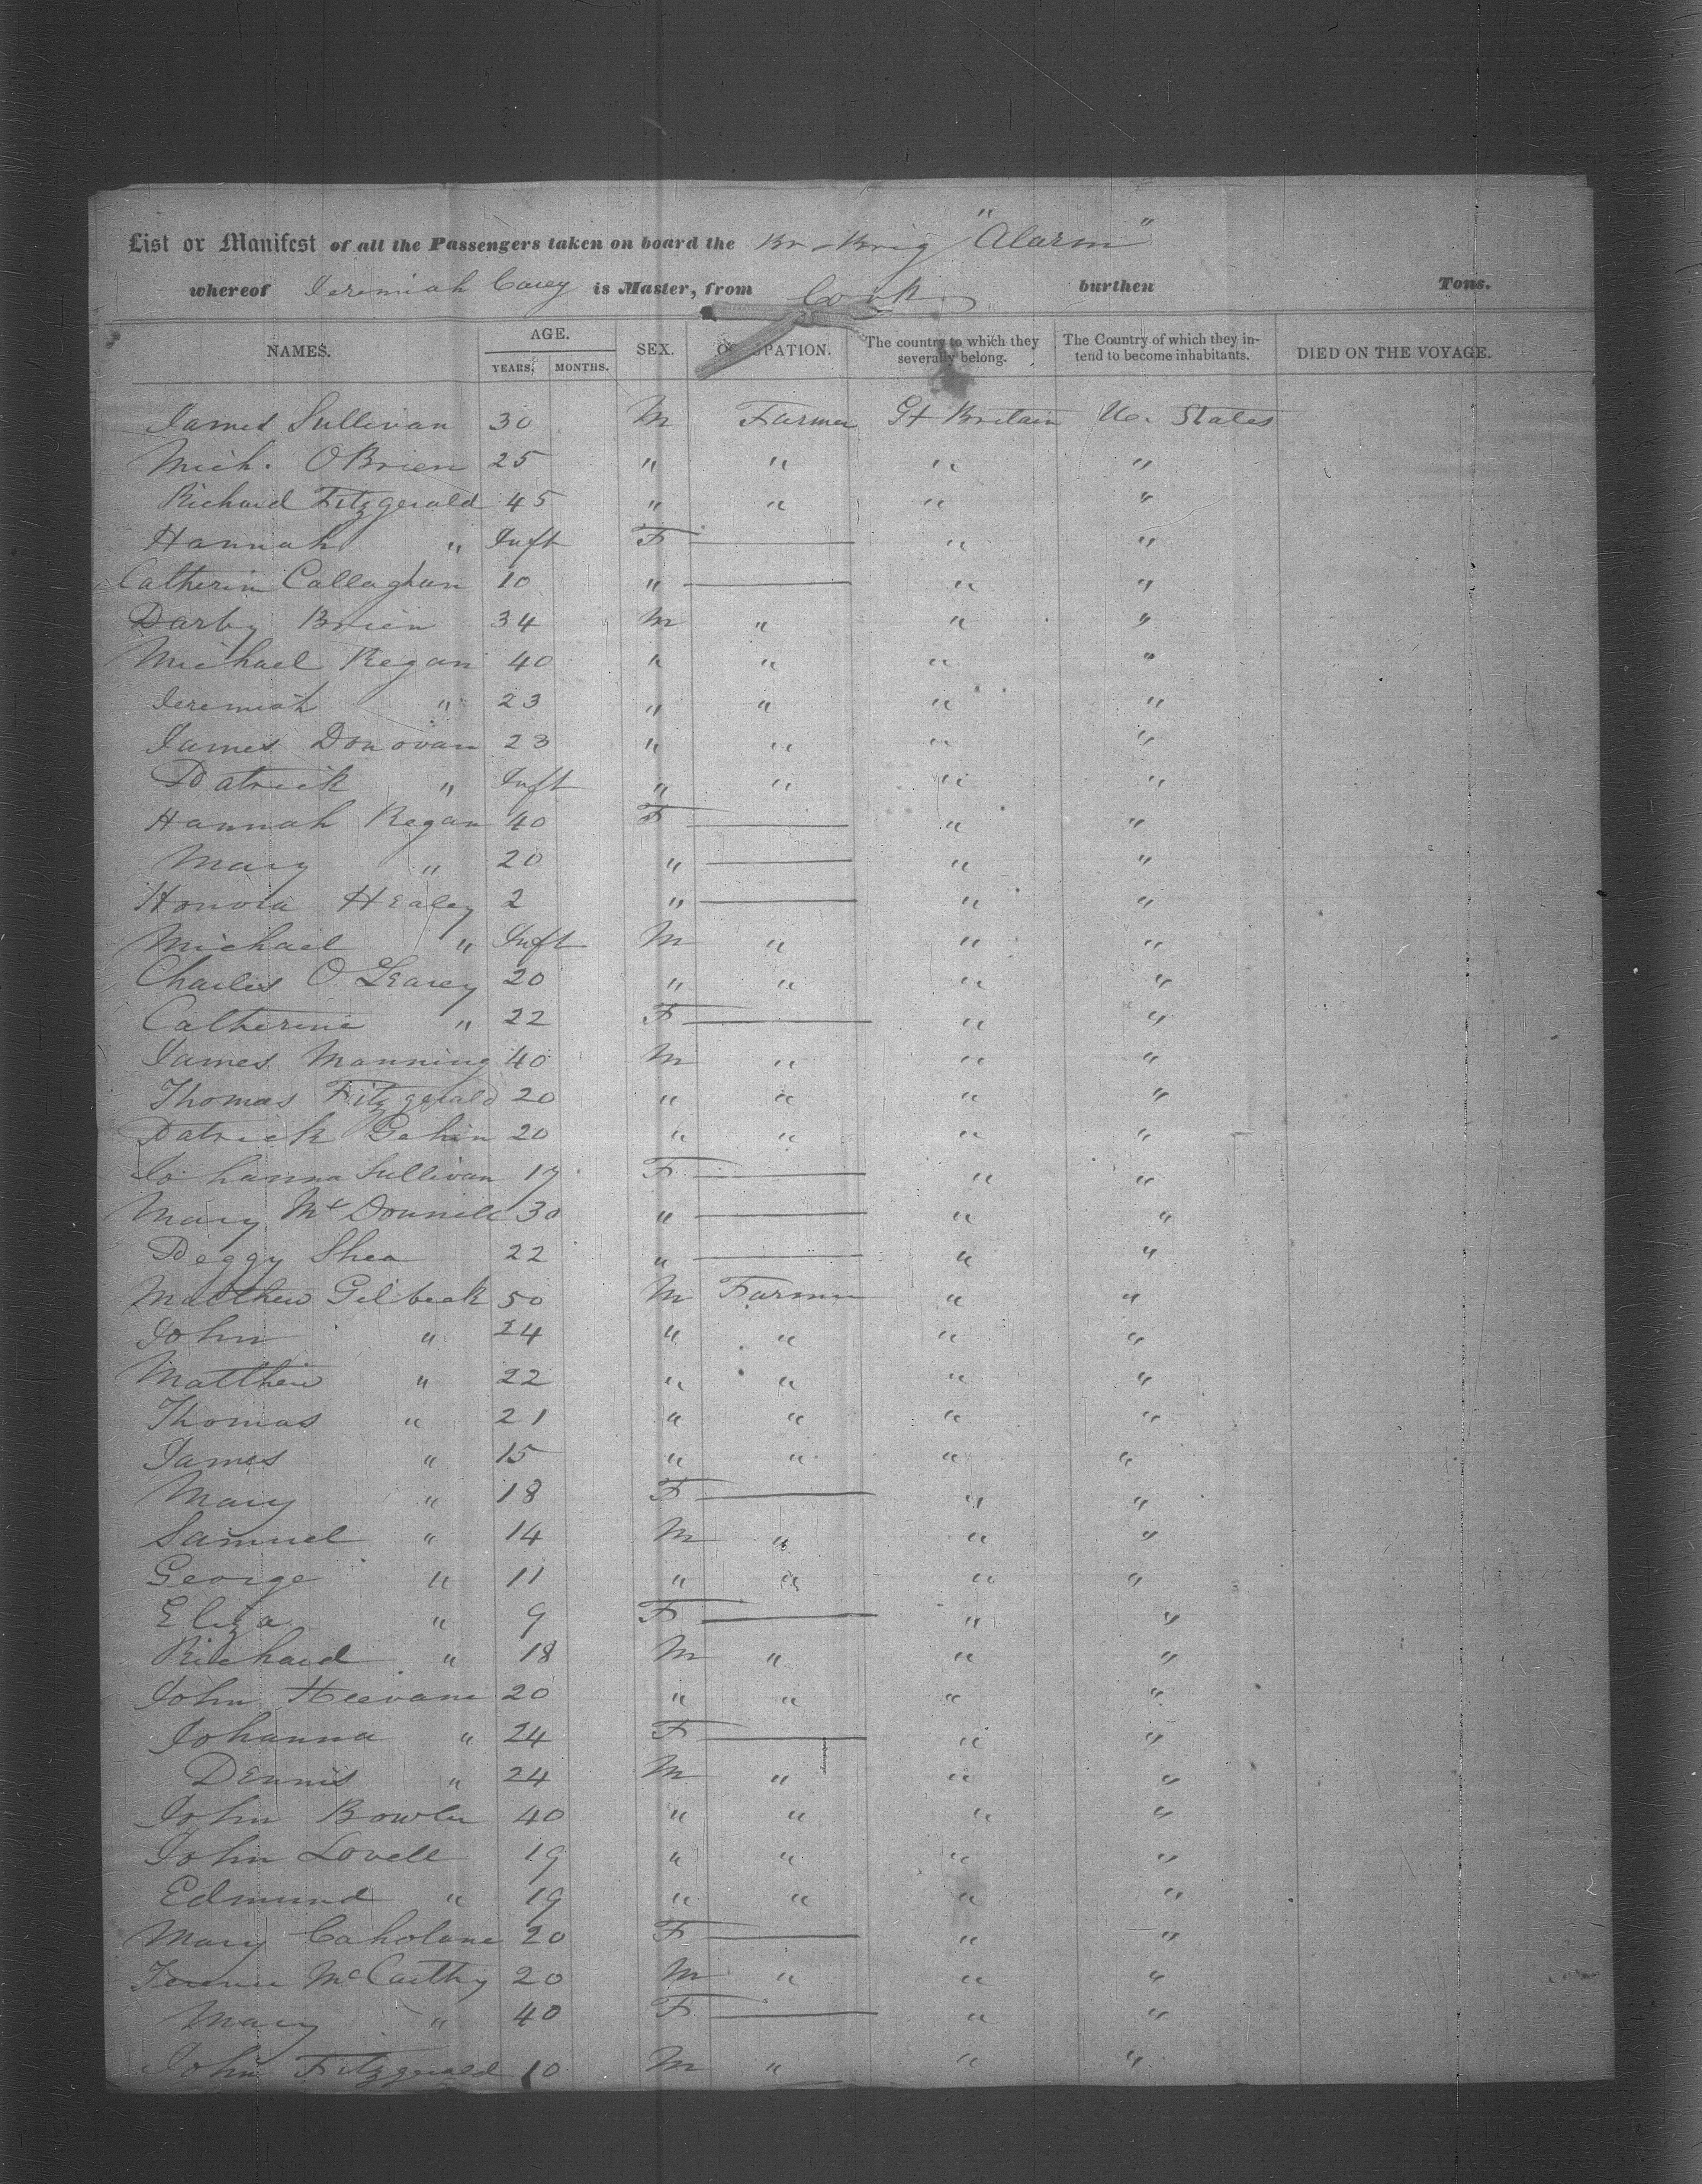 List or Manifest of all the Passengers taken on board the Br Brig "Alarm"
whereof Jeremiah Carey is Master, from Cork burthen Tons.
NAMES. AGE. YEARS. MONTHS. SEX. OCCUPATION. The country to which they severally belong. The Country of which they intend to become inhabitants. DIED ON THE VOYAGE.
James Sullivan 30 M Farmer Gt Britain U. States
Mich. OBrien 25 " " " "
Richard Fitzgerald 45 " " " "
Hannah " Inft F — " "
Catherin Callaghan 10 " — " "
Darby Brien 34 M " " "
Michael Regan 40 " " " "
Jeremiah " 23 " " " "
James Donovan 23 " " " "
Patrick " Inft " " " "
Hannah Regan 40 F — " "
Mary " 20 " — " "
Honora Healey 2 " — " "
Michael " Inft M " " "
Charles O Learey 20 " " " "
Catherine " 22 F — " "
James Manning 40 M " " "
Thomas Fitzgerald 20 " " " "
Patrick 20 " " " "
Johanna Sullivan 17 F — " "
Mary McDonnell 30 " — " "
Peggy Shea 22 " — " "
Matthew Gilbeak 50 M Farmer " "
John " 24 " " " "
Matthew " 22 " " " "
Thomas " 21 " " " "
James " 15 " " " "
Mary " 18 F — " "
Samuel " 14 M " " "
George " 11 " " " "
Eliza " 9 F — " "
Richard " 18 M " " "
John Heevane 20 " " " "
Johanna " 24 F — " "
Dennis " 24 M " " "
John Bowler 40 " " " "
John Lovell 19 " " " "
Edmund " 19 " " " "
Mary Caholane 20 F — " "
McCarthy 20 M " " "
Mary " 40 F — " "
John Fitzgerald 10 M " " "